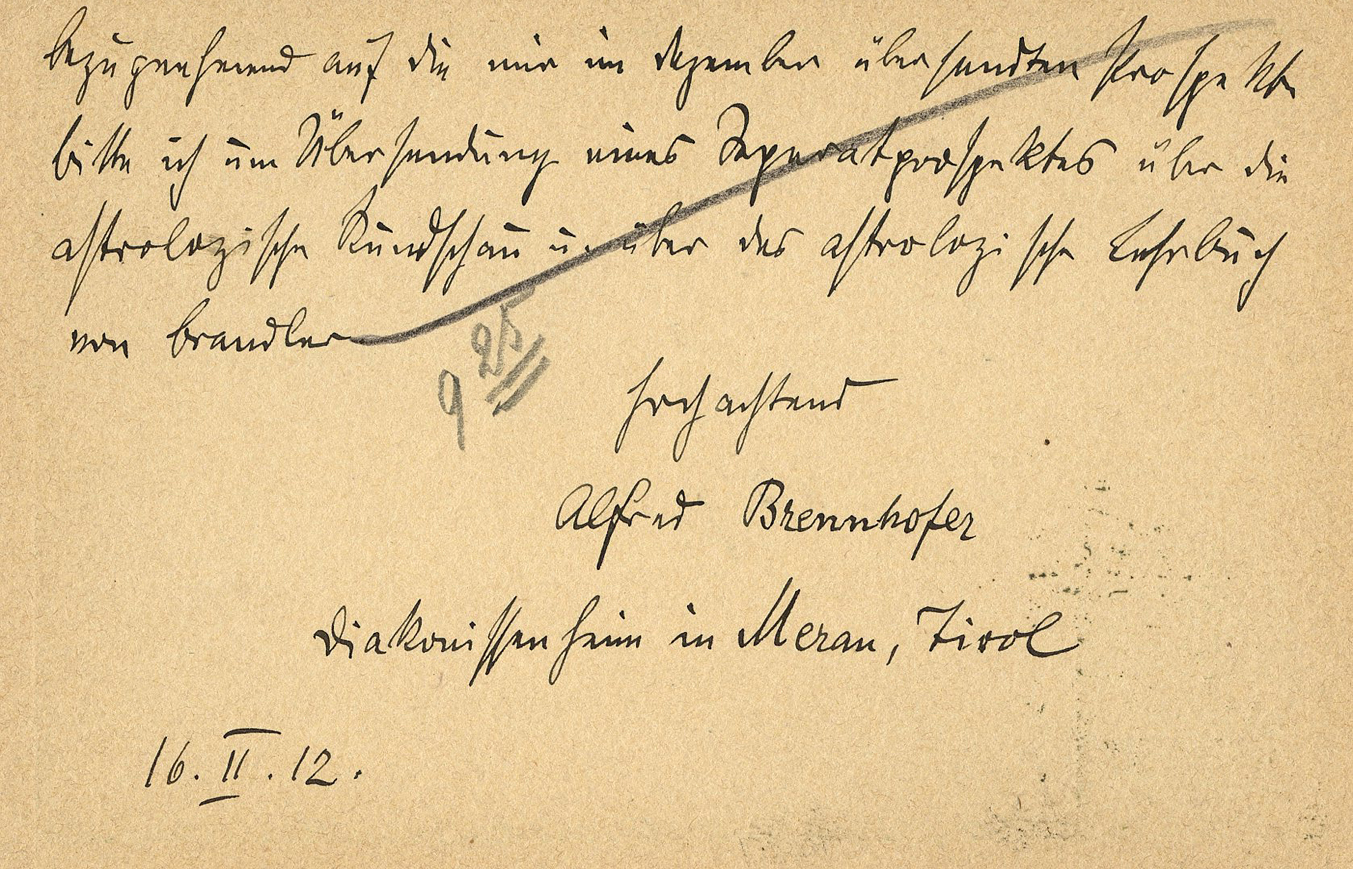 bezugnehmend auf die mir im Dezember übersandten Prospekte
bitte ich um Übersendung eines Separatprospektes über die
astrologische Rundschau u. über das astrologische Lehrbuch
von Brandler
9 25
hochachtend
Alfred Brennhofer
Diakonissenheim in Meran, Tirol
16. II. 12.